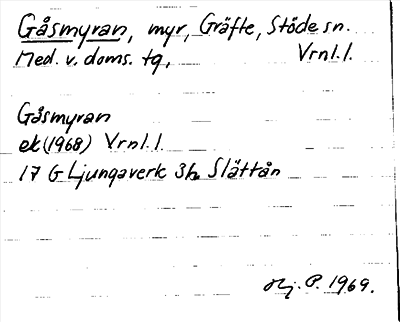 Gåsmyran, myr, Gräfte, Stöde sn.
Med. v. doms. tg, Vrnl. l.
Gåsmyran
ek (1968) Vrnl. l.
17 G Ljungaverk 3h Slättån
P. 1969.